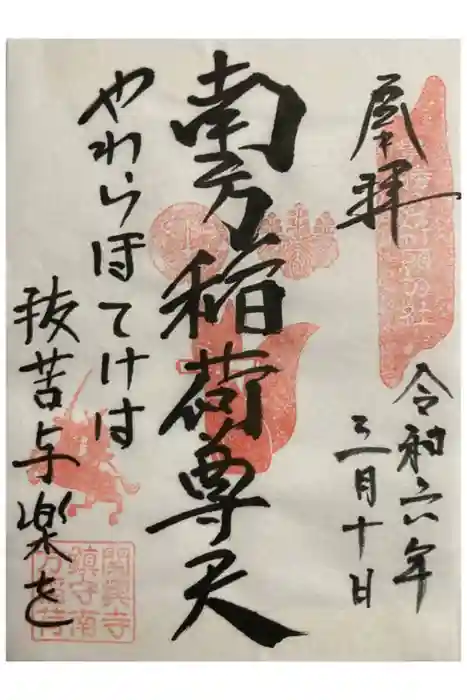 奉拝
令和六年
三月十日
南方稲荷尊天
やわらほとけは
抜苦与楽を
関興寺
鎮守南
方稲荷